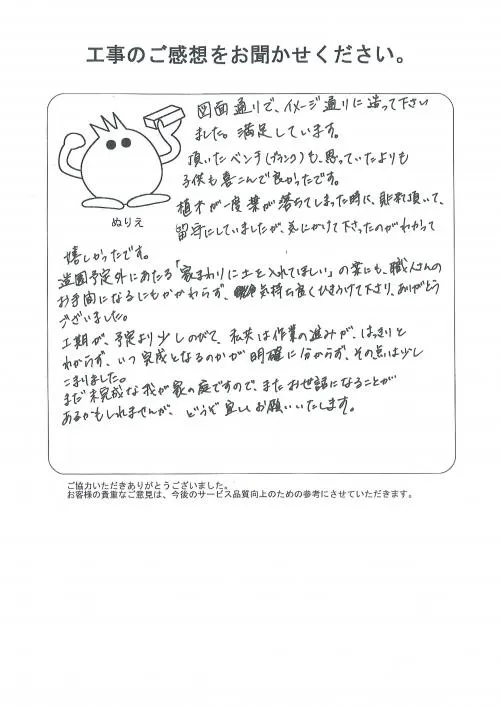 工事のご感想をお聞かせください。
図面通りで、イメージ通りに造って下さい
ました。満足しています。
頂いたベンチ(ブランコ)も、思っていたよりも
子供も喜こんで良かったです。
植木が一度葉が落ちてしまった時に、来て頂いて、
留守にしていましたが、気にかけて下さったのがわかって
ぬりえ
嬉しかったです。
造園予定外にあたる「家まわりに土を入れてほしい」の案にも、職人さんの
お手間になるにもかかわらず、気持ち良くひきうけて下さり、ありがとう
ございました。
工期が、予定より少しのびて、私共は作業の進みが、はっきりと
わからず、いつ完成となるのかが明確に分からず、その点は少し
こまりました。
まだ未完成な我が家の庭ですので、またおせ話になることが
あるかもしれませんが、どうぞ宜しくお願いいたします。
ご協力いただきありがとうございました。
お客様の貴重なご意見は、今後のサービス品質向上のための参考にさせていただきます。